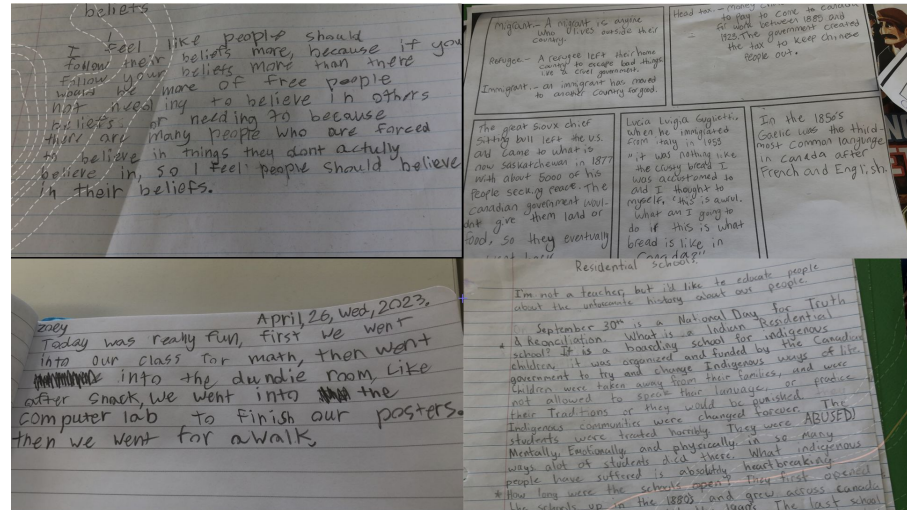 beliefs
I feel like people should
follow their beliefs more, because if you
follow your beliefs more than there
would be more of free people
not needing to believe in others
beliefs. or needing to because
there are many people who are forced
to believe in things they dont actully
believe in, so I feel people should believe
in their beliefs.
Migrant. - A migrant is anyone
who lives outside their
country.
Refugee - A refugee left their home
country to escape bad things
like a cruel government.
Immigrant. - an immigrant has moved
to another country for good.
Head tax. - Money
to pay to come to Canada
for work between 1885 and
1923. The government created
the tax to keep Chinese
people out.
The great Sioux chief
Sitting bull left the U.S.
and came to what is
now Saskatchewan in 1877
with about 5000 of his
people seeking peace. The
Canadian government woul-
dnt give them land or
food, so they eventually
went back
Lucia Luigia
when he immigrated
from italy in 1955
"it was nothing like
the crusty bread I
was accustomed to
and I thought to
myself, "this is awful.
what am I going to
do if this is what
bread is like in
Canada?"
In the 1850's
Gaelic was the third-
most common language
in Canada after
French and English.
Zoey
April, 26, Wed, 2023.
Today was really fun, first we went
into our class for math, then went
into the dundie room, Like
after snack, we went into the
computer lab to finish our posters.
then we went for a walk,
Residential schools.
I'm not a teacher, but i'll like to educate people
about the unfortunate history about our people.
September 30th is a National Day for Truth
& Reconciliation. What is a Indian Residential
school? It is a boarding school for indigenous
children, it was organized and funded by the Canadian
government to try and change Indigenous ways of life.
Children were taken away from their families, and were
not allowed to speak their language, or
their Traditions or they would be punished.
Indigenous communities were changed forever. The
students were treated horribly. They were ABUSED!
Mentally, Emotionally and physically, in so many
ways alot of students died there. What indigenous
people have suffered is absolutely heartbreaking
* How long were the schools open? They first opened
the schools up in the 1880s and grew across canad-
The last school